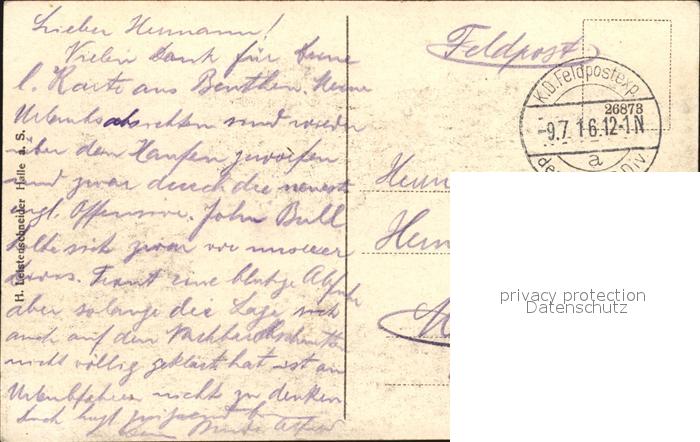 Lieber Hermann!
Vielen Dank für Deine
l. Karte aus Beuthen. Meine
Urlaubsabsichten sind wieder
über den Haufen geworfen
und zwar durch die neueste
engl. Offensive. John Bull
holte sich zwar vor unserer
Front eine blutige Abfuhr
aber solange die Lage sich
auch auf den Nachbarabschnitten
nicht völlig geklärt hat ist an
Urlaubfahren nicht zu denken
Doch
H. Leistenschneider Halle a. S.
Feldpost
K.D. Feldpostexp.
26873
-9.7.16.12-1N
a
der Div
privacy protection
Datenschutz